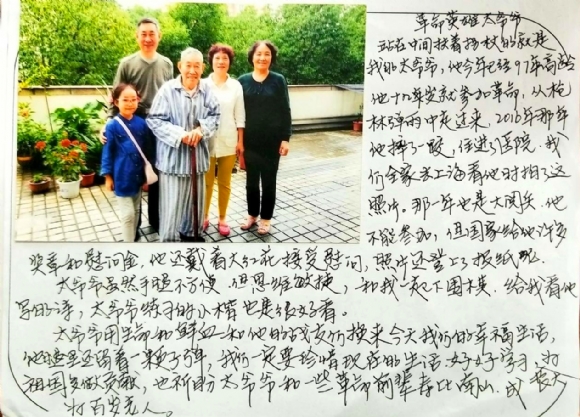 革命英雄太爷爷
站在中间扶着拐杖的就是
我的太爷爷,他今年已经97年高龄
他十几岁就参加革命,从枪
林弹雨中走过来,2016年那年
他摔了一跤,住进了医院,我
们全家去上海看他时拍了这
照片。那一年也是大阅兵,他
不能参加,但国家给他许多
奖章和慰问金,他还戴着大红花接受慰问,照片还登上了报纸呢。
太爷爷虽然手脚不方便,但思维敏捷,和我一起下围棋,给我看他
写的诗,太爷爷练习的小楷也是很好看。
太爷爷用生命和鲜血和他的战友们换来今天我们的幸福生活,
他腿里还留着一颗子弹,我们一定要珍惜现在的生活,好好学习,为
祖国多做贡献,也祈盼太爷爷和一些革命前辈寿比南山,成
为百岁老人。